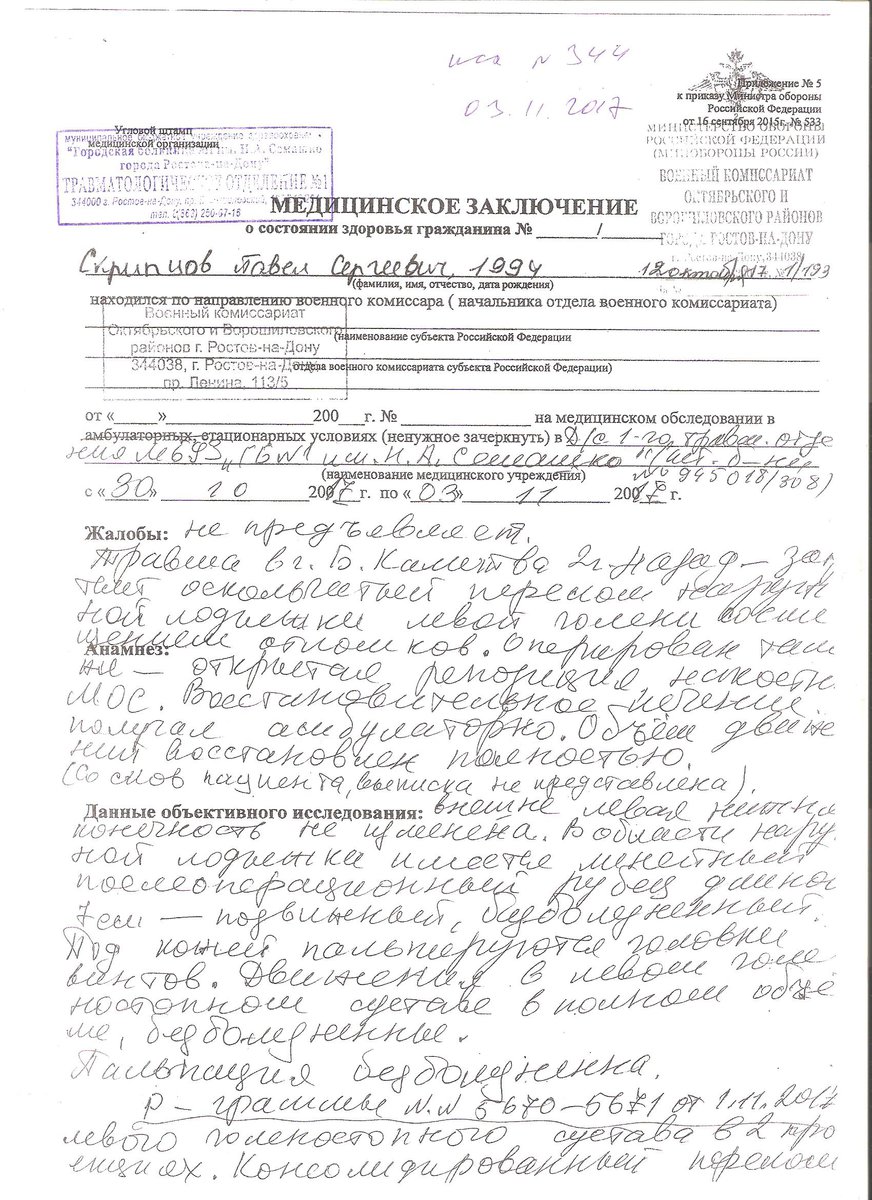 исх N 344
03.11.2017
Приложение № 5
к приказу Министра обороны
Российской Федерации
от 16 сентября 2015г. № 533
Угловой штамп
медицинской организации
"Городская больница №1 им. Н.А. Семашко
города Ростова-на-Дону"
ТРАВМАТОЛОГИЧЕСКОЕ ОТДЕЛЕНИЕ №1
344000 г. Ростов-на-Дону,
МИНИСТЕРСТВО ОБОРОНЫ
РОССИЙСКОЙ ФЕДЕРАЦИИ
(МИНОБОРОНЫ РОССИИ)
ВОЕННЫЙ КОМИССАРИАТ
ОКТЯБРЬСКОГО И
ВОРОШИЛОВСКОГО РАЙОНОВ
ГОРОДА РОСТОВ-НА-ДОНУ
г. Ростов-на-Дону, 344038
МЕДИЦИНСКОЕ ЗАКЛЮЧЕНИЕ
о состоянии здоровья гражданина № ______/______
Скрипцов Павел Сергеевич, 1994
(фамилия, имя, отчество, дата рождения)
находился по направлению военного комиссара ( начальника отдела военного комиссариата)
Военный комиссариат
Октябрьского и Ворошиловского
районов г. Ростов-на-Дону
344038, г. Ростов-на-Дону
пр. Ленина, 113/5
(наименование субъекта Российской Федерации
отдела военного комиссариата субъекта Российской Федерации)
от «_____»____________200___г. №____________на медицинском обследовании в
амбулаторных, стационарных условиях (ненужное зачеркнуть) в Д/с 1-го травм. отде
ления МБУЗ "ГБ N1 им. Н.А. Семашко"
(наименование медицинского учреждения) N 945018/308)
с «30» 10 2017 г. по «03» 11 2017 г.
Жалобы: не предъявляет.
Травма в г. Б. Калитва 2 г. назад – зак
тый оскольчатый перелом наруж
ной лодыжки левой голени со сме
щением отломков. Оперирован там
Анамнез:
же – открытая репозиция накостн.
МОС. Восстановительное лечение
получал амбулаторно. Объём движе
ний восстановлен полностью.
(Со слов пациента, выписка не представлена).
Данные объективного исследования: внешне левая нижня
конечность не изменена. В области наруж
ной лодыжки имеется линейный
послеоперационный рубец длиной
7 см – подвижный, безболезненный.
Под кожей пальпируются головки
винтов. Движения в левом голе
ностопном суставе в полном объе
ме, безболезненные.
Пальпация безболезненна.
Р – граммы N.N 5670–5671 от 1.11.2017
левого голеностопного сустава в 2 про
екциях. Консолидированный перелом